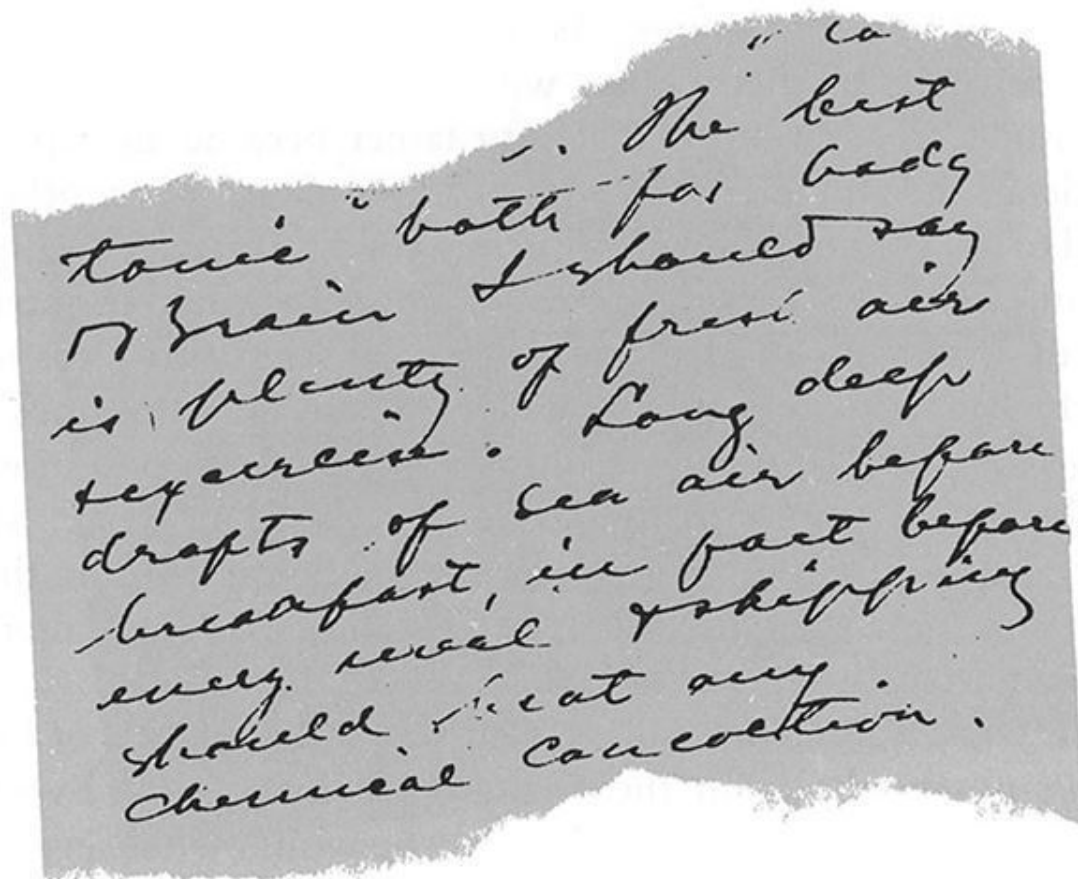 The best
tonic both for body
& Brain I should say
is plenty of fresh air
& exercise. Long deep
drafts of sea air before
breakfast, in fact before
every meal & skipping
should beat any
chemical concoction.